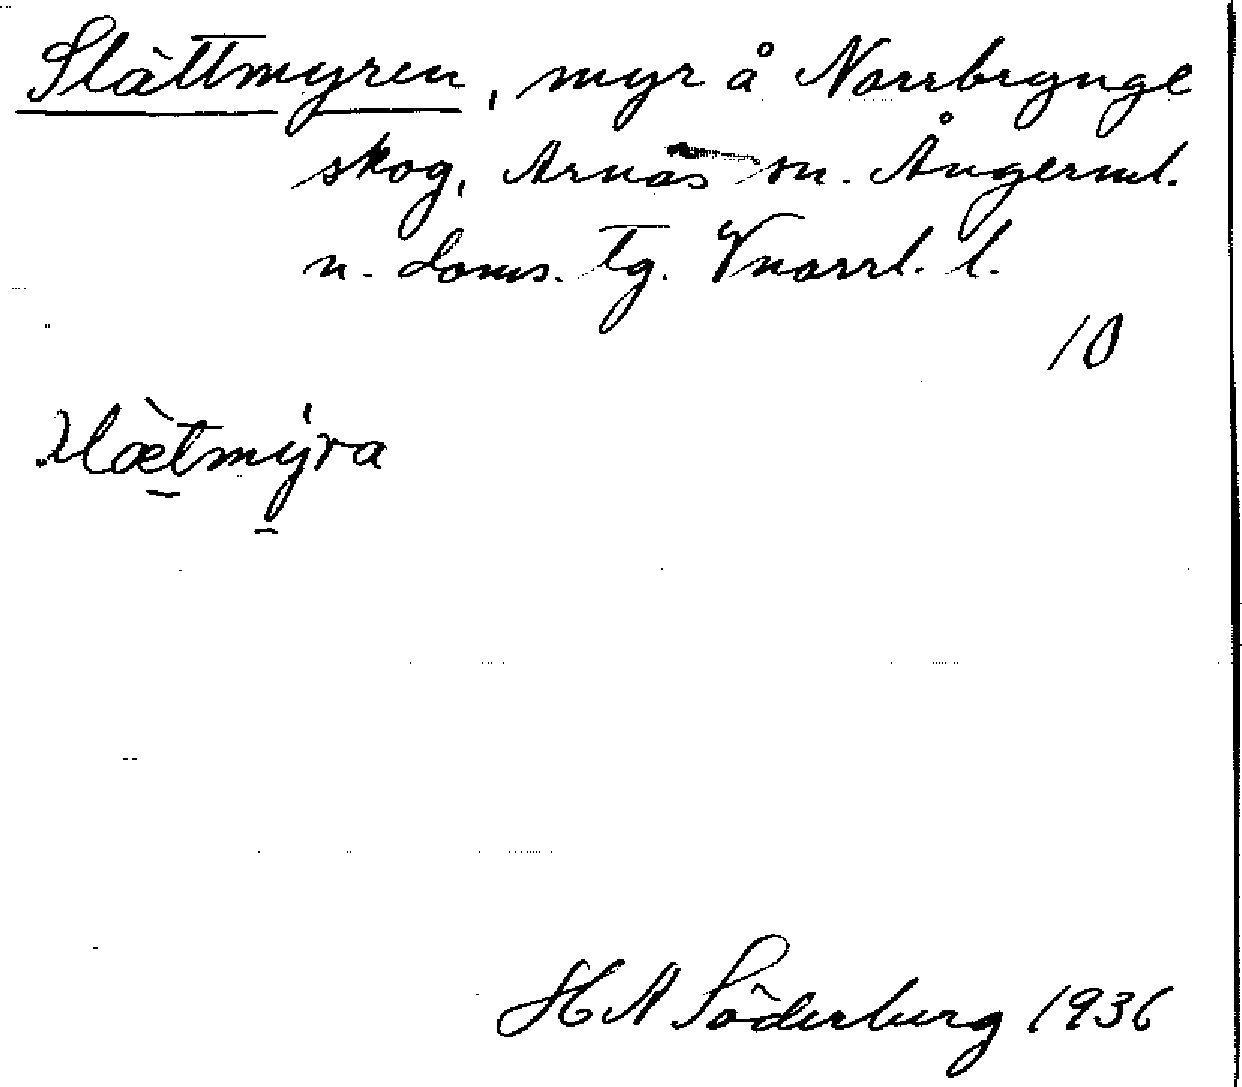 Slåttmyren, myr å Norrbrynge
skog, Arnäs sn. Ångerml.
n. doms. tg. Vnorrl. l.
10
H A Söderberg 1936